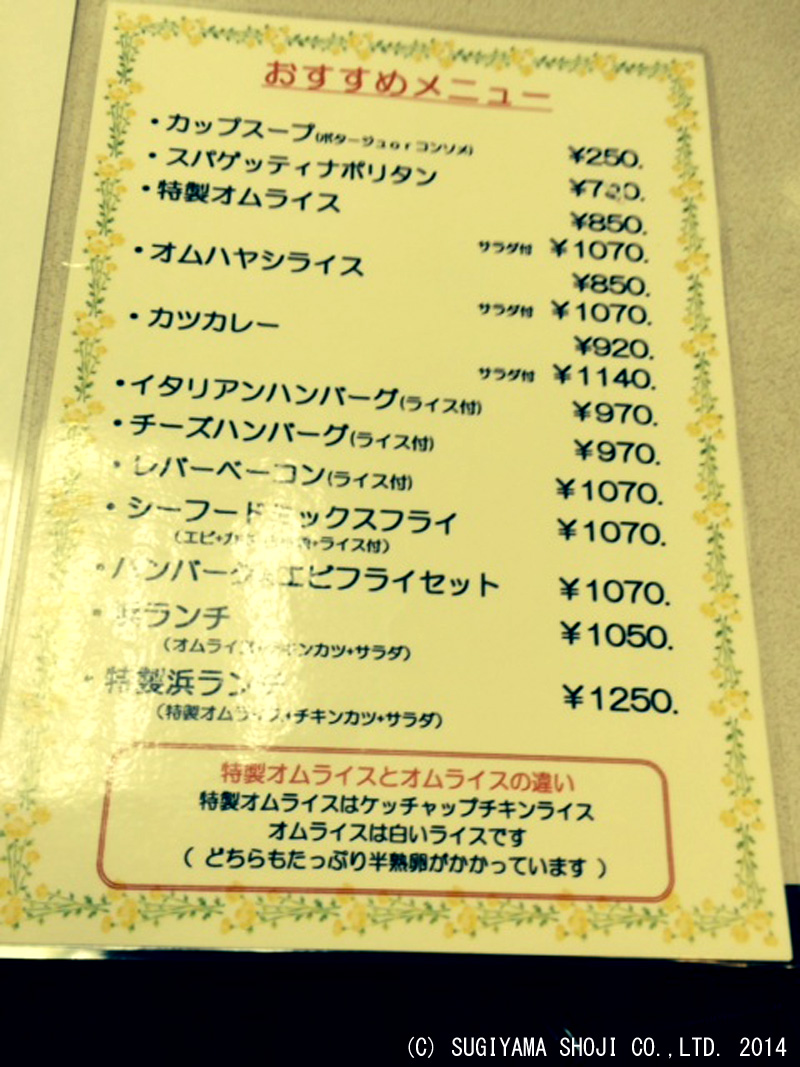 おすすめメニュー
・カップスープ(ポタージュorコンソメ) ¥250.
・スパゲッティナポリタン
・特製オムライス ¥850.
サラダ付 ¥1070.
・オムハヤシライス ¥850.
サラダ付 ¥1070.
・カツカレー ¥920.
サラダ付 ¥1140.
・イタリアンハンバーグ(ライス付) ¥970.
・チーズハンバーグ(ライス付) ¥970.
・レバーベーコン(ライス付) ¥1070.
・シーフードミックスフライ ¥1070.
(エビ+ +ライス付)
・ハンバーグ エビフライセット ¥1070.
・ ランチ ¥1050.
(オムライス+チキンカツ+サラダ)
・特製浜ランチ ¥1250.
(特製オムライス+チキンカツ+サラダ)
特製オムライスとオムライスの違い
特製オムライスはケッチャップチキンライス
オムライスは白いライスです
( どちらもたっぷり半熟卵がかかっています )
(C) SUGIYAMA SHOJI CO.,LTD. 2014